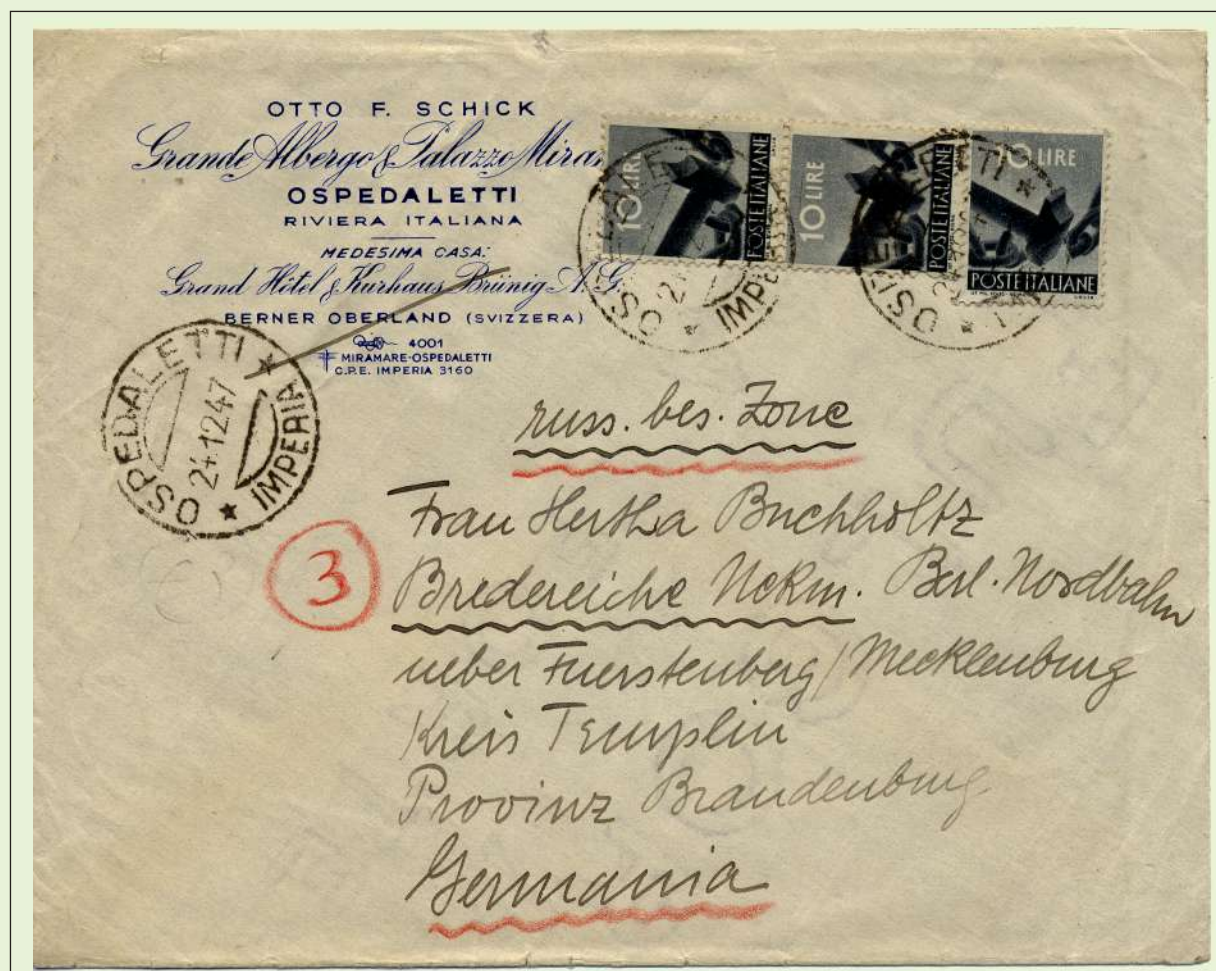 OTTO F. SCHICK
Grande Albergo & Palazzo Mira
OSPEDALETTI
RIVIERA ITALIANA
MEDESIMA CASA:
Grand Hôtel & Kurhaus Brünig A.G.
BERNER OBERLAND (SVIZZERA)
4001
MIRAMARE-OSPEDALETTI
C.P.E. IMPERIA 3160
10 LIRE
POSTE ITALIANE
10 LIRE
POSTE ITALIANE
10 LIRE
POSTE ITALIANE
OSPEDALETTI
24.12.47
IMPERIA
russ. bes. Zone
Frau Hertha Buchholtz
3
Bredereiche Uckm. Berl. Nordbahn
ueber Fuerstenberg/Mecklenburg
Kreis Templin
Provinz Brandenburg
Germania